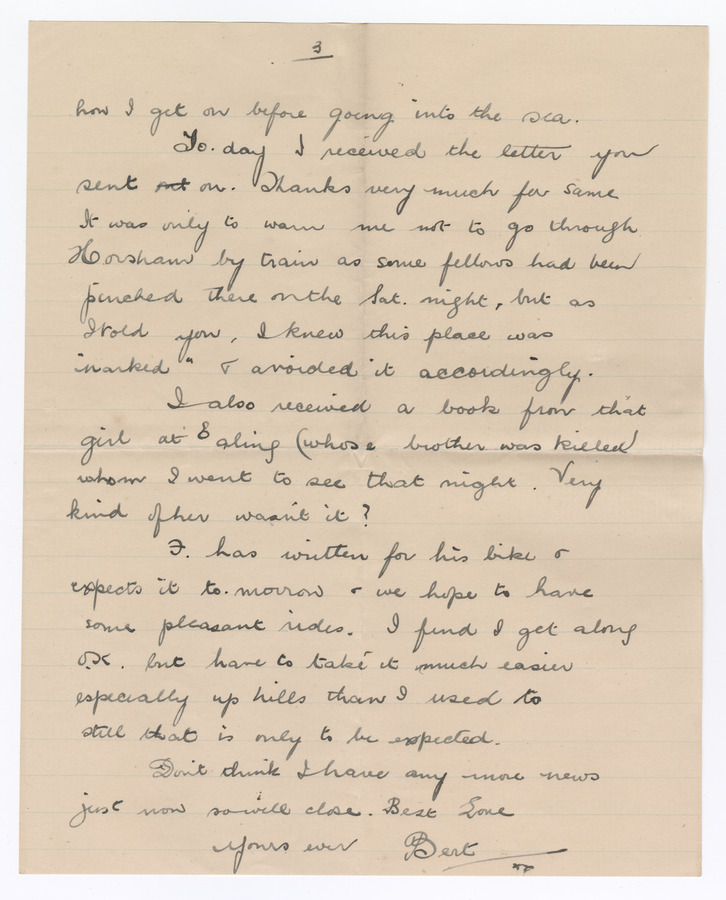 3
how I get on before going into the sea.
To.day I received the letter you
sent out on. Thanks very much for same
It was only to warn me not to go through
Horsham by train as some fellows had been
pinched there on the Sat. night, but as
I told you, I knew this place was
"marked" & avoided it accordingly.
I also received a book from that
girl at Ealing (whose brother was killed
whom I went to see that night. Very
kind of her wasn't it?
F. has written for his bike &
expects it to.morrow & we hope to have
some pleasant rides. I find I get along
O.K. but have to take it much easier
especially up hills than I used to
still that is only to be expected.
Don't think I have any more news
just now so will close. Best Love
Yours ever Bert
xx